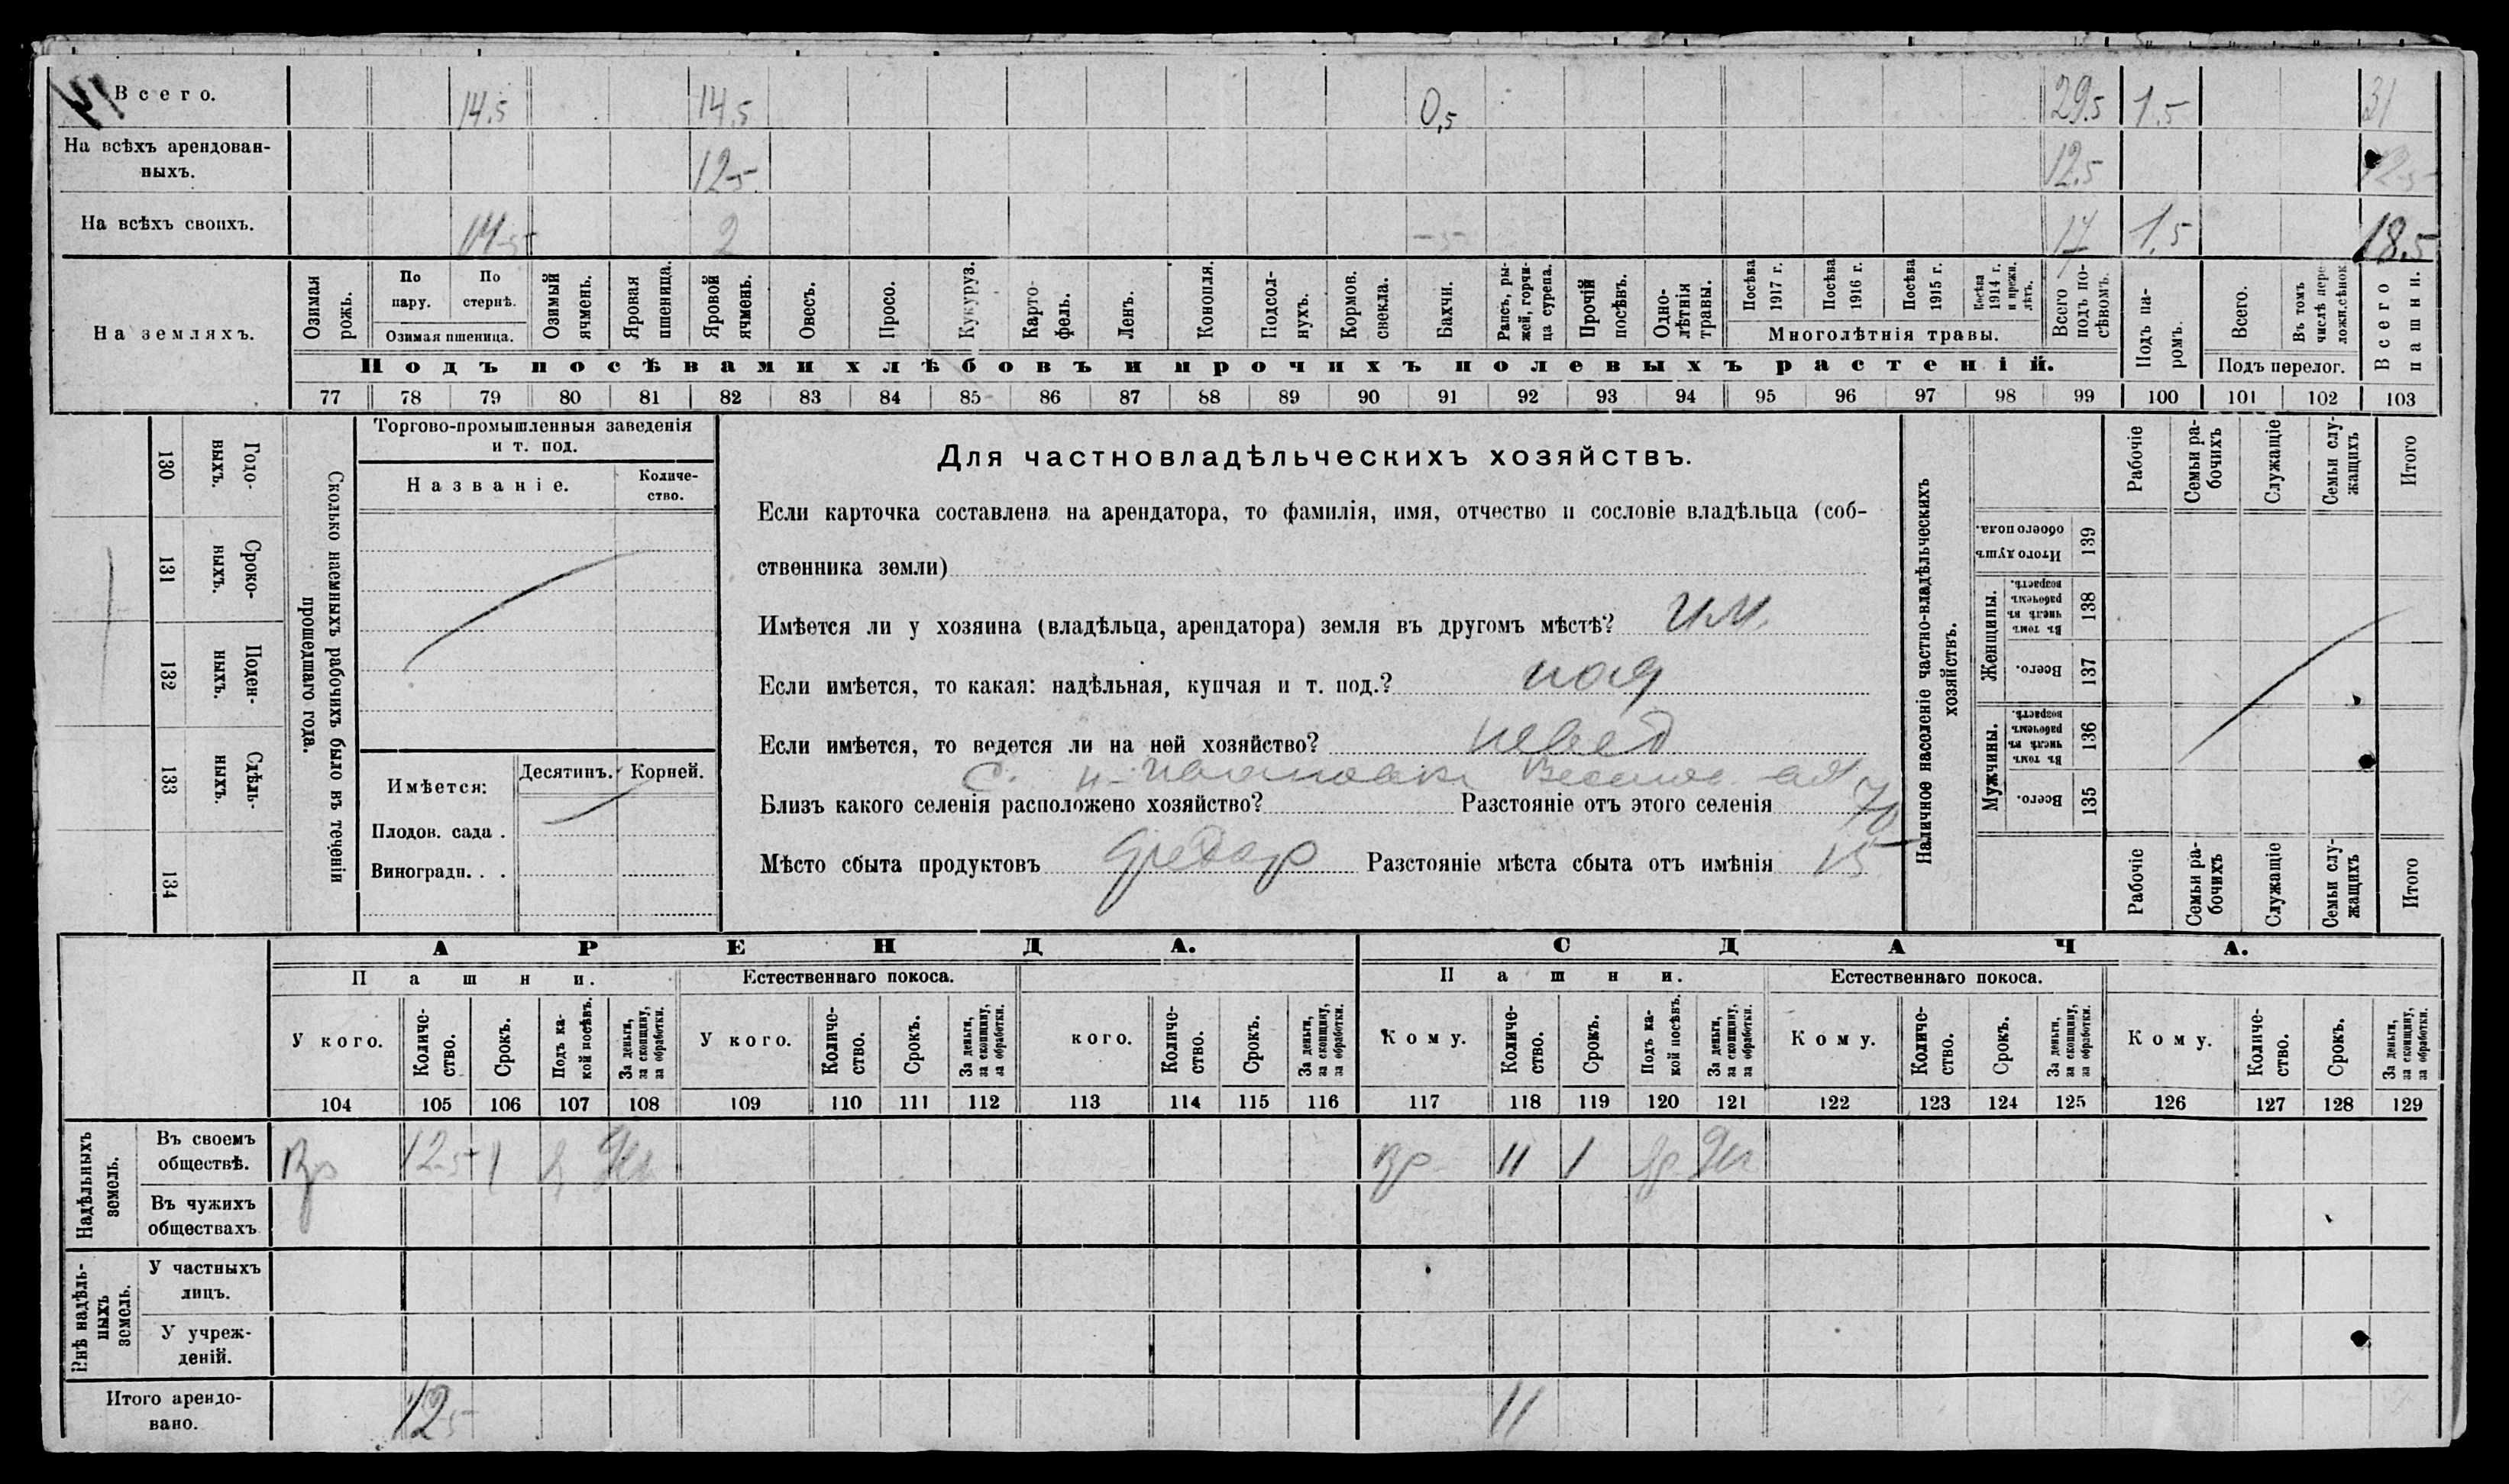 Всего. 14.5 14.5 0,5 29.5 1.5 31
На всѣхъ арендован-
ныхъ. 12.5 12.5 12.5
На всѣхъ своихъ. 14.5 2 -5 17 1.5 18.5
На земляхъ.
Озимая рожь.
По пару.
По стернѣ.
Озимая пшеница.
Озимый ячмень.
Яровая пшеница.
Яровой ячмень.
Овесъ.
Просо.
Кукуруз.
Карто-
фель.
Ленъ.
Конопля.
Подсол-
нухъ.
Кормов. свекла.
Бахчи.
Рапсъ, ры-
жей, горчи-
ца сурепа.
Прочій посѣвъ.
Одно-
лѣтнія травы.
Посѣва 1917 г.
Посѣва 1916 г.
Посѣва 1915 г.
Посѣва 1914 г. и прежн. лѣтъ.
Многолѣтнія травы.
Всего подъ по-
сѣвомъ.
Подъ па-
ромъ.
Всего.
Въ томъ числѣ пере-
ложн.сѣнок
Подъ перелог.
Всего пашни.
Подъ посѣвами хлѣбовъ и прочихъ полевыхъ растеній.
77 78 79 80 81 82 83 84 85 86 87 88 89 90 91 92 93 94 95 96 97 98 99 100 101 102 103
130 Годо-
ныхъ.
131 Сроко-
ныхъ.
132 Поден-
ныхъ.
133 Сдѣль-
ныхъ.
134
Сколько наемныхъ рабочихъ было въ теченіи
прошедшаго года.
Торгово-промышленныя заведенія
и т. под.
Названіе.
Количе-
ство.
Имѣется:
Десятинъ. Корней.
Плодов. сада .
Виноградн. . .
Для частновладѣльческихъ хозяйствъ.
Если карточка составлена на арендатора, то фамилія, имя, отчество и сословіе владѣльца (соб-
ственника земли)
Имѣется ли у хозяина (владѣльца, арендатора) земля въ другомъ мѣстѣ? им.
Если имѣется, то какая: надѣльная, купчая и т. под.? над
Если имѣется, то ведется ли на ней хозяйство? невед
Близъ какого селенія расположено хозяйство? Разстояніе отъ этого селенія 70
Мѣсто сбыта продуктовъ Разстояніе мѣста сбыта отъ имѣнія 15
Наличное населеніе частно-владѣльческихъ
хозяйствъ.
Рабочіе
Семьи ра-
бочихъ
Служащіе
Семьи слу-
жащихъ
Итого
Итого душъ обоего пола. 139
Женщины.
Въ томъ числѣ въ рабочемъ возрастѣ. 138
Всего. 137
Мужчины.
Въ томъ числѣ въ рабочемъ возрастѣ. 136
Всего. 135
Рабочіе
Семьи ра-
бочихъ
Служащіе
Семьи слу-
жащихъ
Итого
АРЕНДА. СДАЧА.
Пашни. Естественнаго покоса. Пашни. Естественнаго покоса.
У кого.
Количе-
ство.
Срокъ.
Подъ ка-
кой посѣвъ.
За деньги,
за скопщину,
за обработки.
У кого.
Количе-
ство.
Срокъ.
За деньги,
за скопщину,
за обработки.
кого.
Количе-
ство.
Срокъ.
За деньги,
за скопщину,
за обработки.
Кому.
Количе-
ство.
Срокъ.
Подъ ка-
кой посѣвъ.
За деньги,
за скопщину,
за обработки.
Кому.
Количе-
ство.
Срокъ.
За деньги,
за скопщину,
за обработки.
Кому.
Количе-
ство.
Срокъ.
За деньги,
за скопщину,
за обработки.
104 105 106 107 108 109 110 111 112 113 114 115 116 117 118 119 120 121 122 123 124 125 126 127 128 129
Надѣльныхъ
земель.
Въ своемъ
обществѣ. Вр 12.5 1 Вр 11 1
Въ чужихъ
обществахъ
Внѣ надѣль-
ныхъ
земель.
У частныхъ
лицъ.
У учреж-
деній.
Итого арендо-
вано. 12.5 11